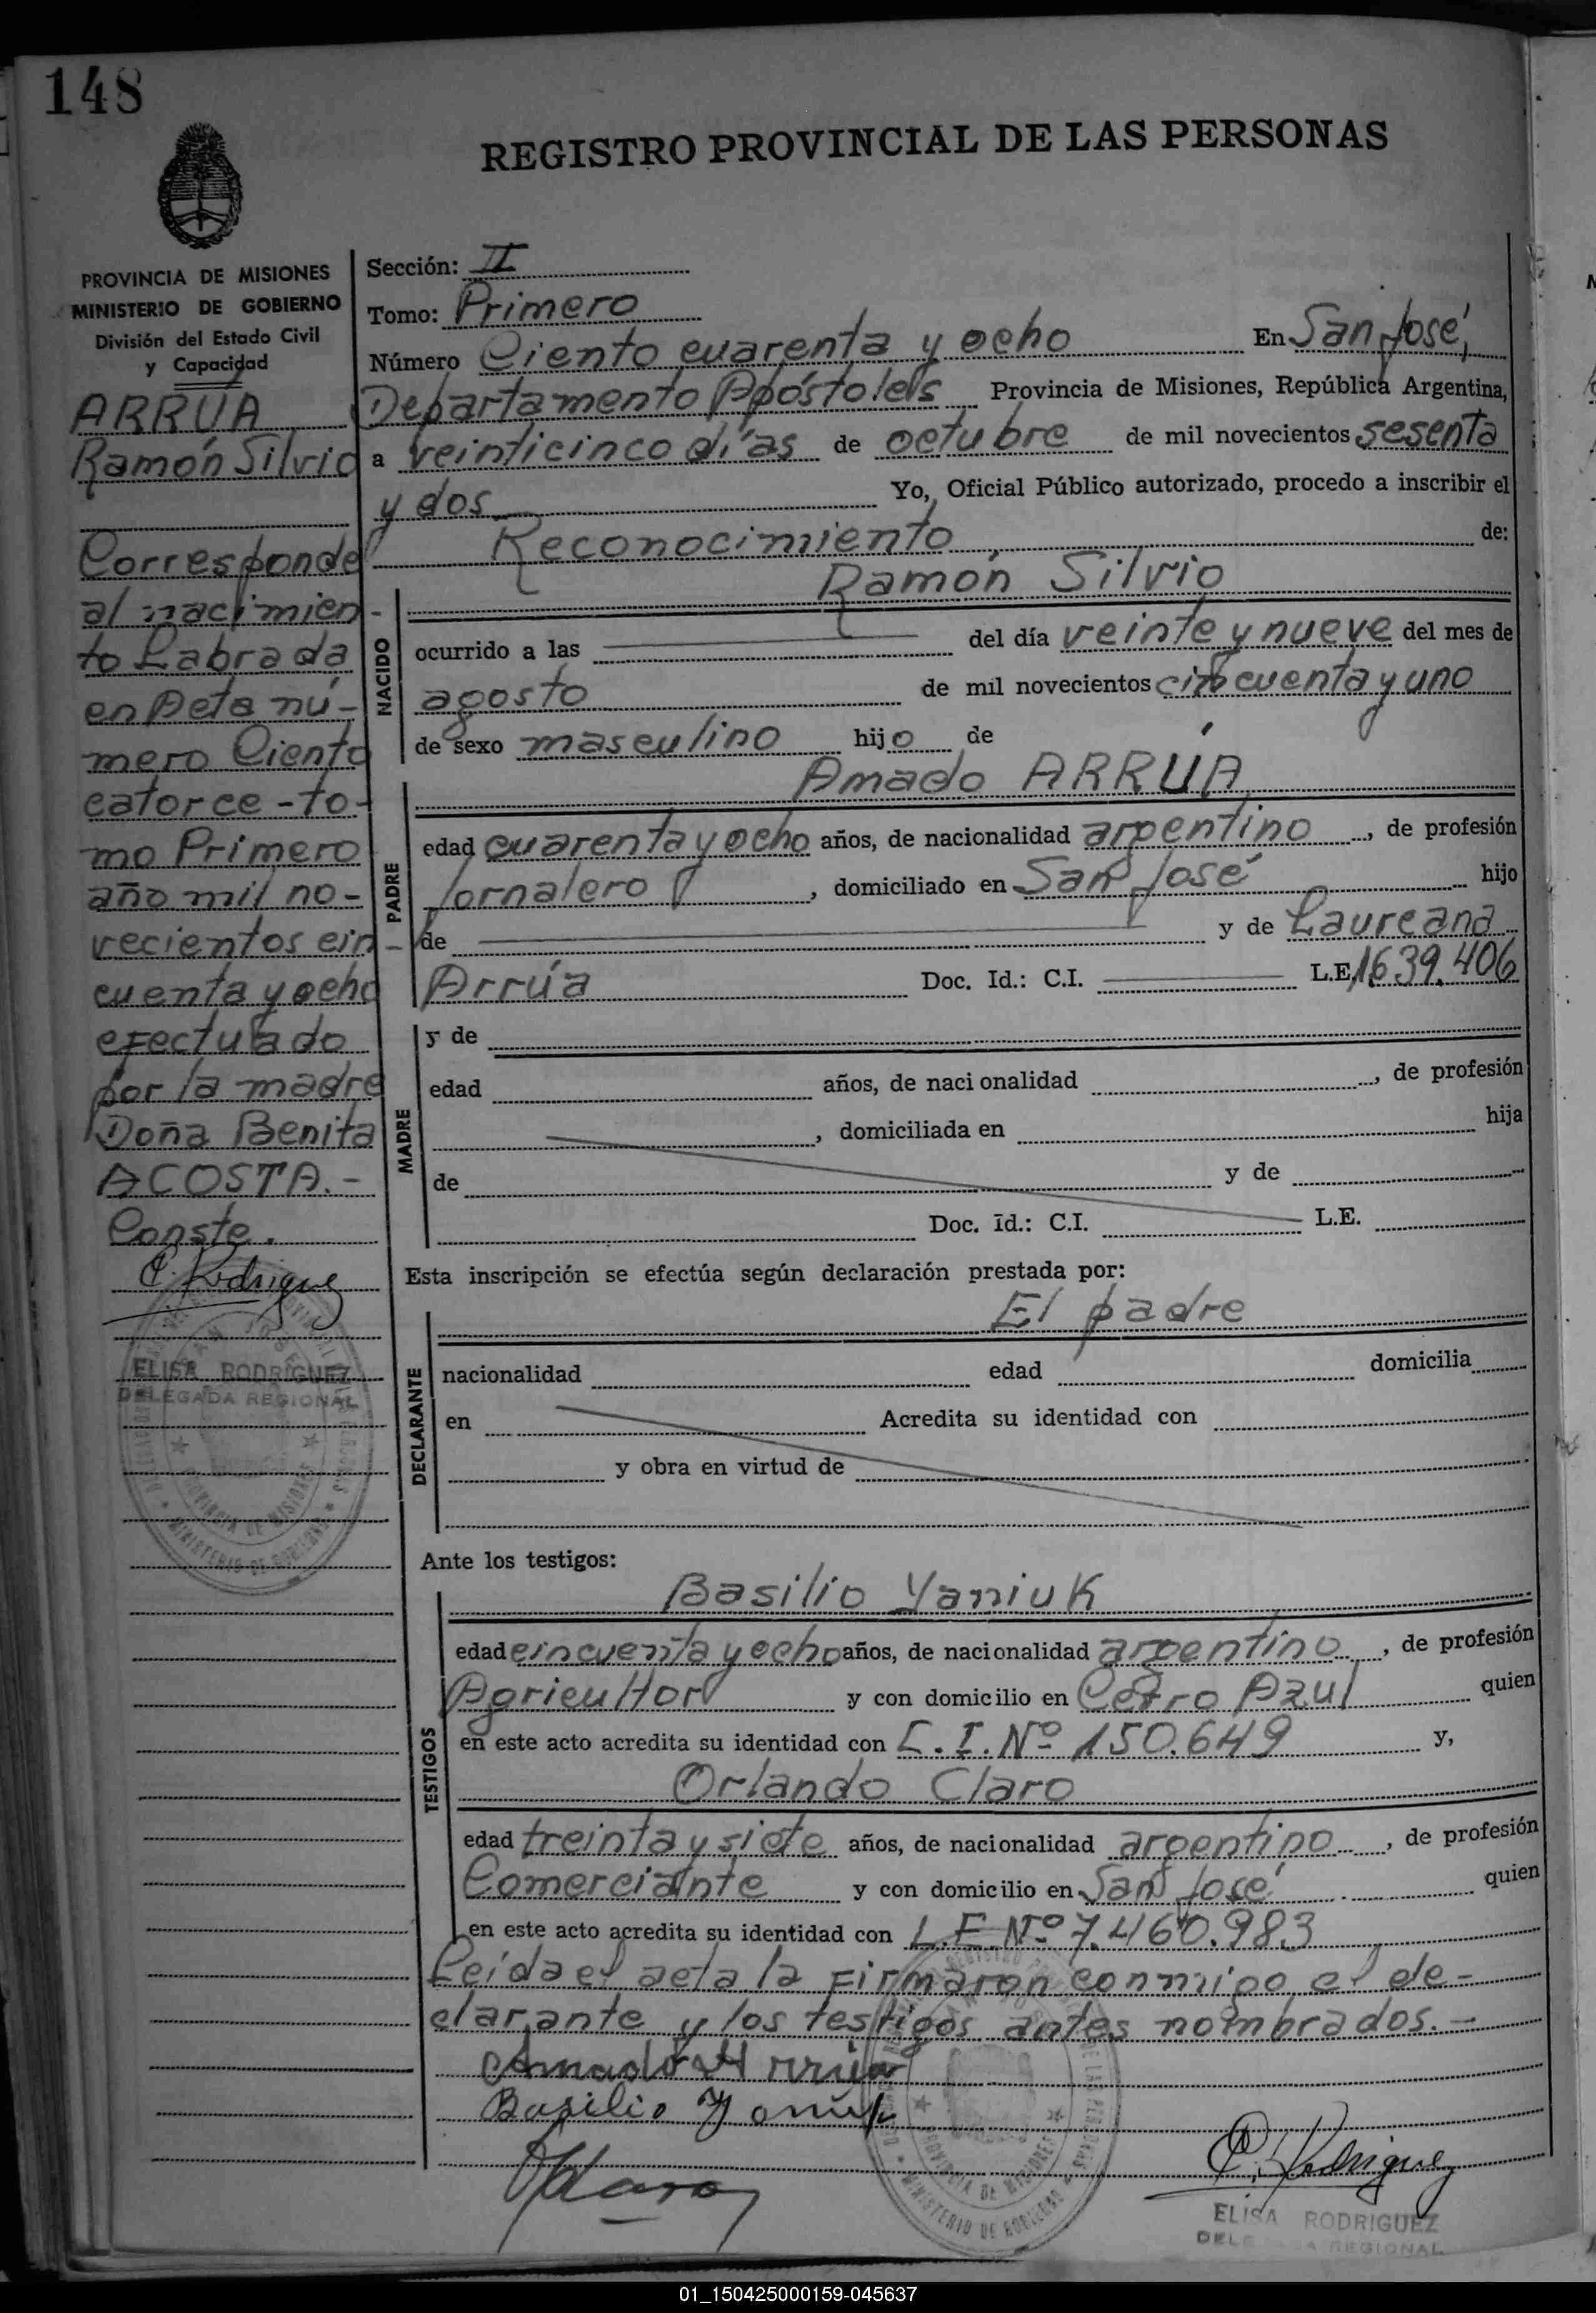 148
REGISTRO PROVINCIAL DE LAS PERSONAS
PROVINCIA DE MISIONES
MINISTERIO DE GOBIERNO
División del Estado Civil
y Capacidad
ARRUA
Ramón Silvio
Corresponde
al nacimien-
to Labrada
en Acta nú-
mero Ciento
catorce - to-
mo Primero
año mil no-
vecientos cin-
cuenta y ocho
efectuado
por la madre
Doña Benita
ACOSTA.-
Conste.
E. Rodriguez
ELISA RODRIGUEZ
DELEGADA REGIONAL
Sección: II
Tomo: Primero
Número Ciento cuarenta y ocho En San José,
Departamento Apóstoles Provincia de Misiones, República Argentina,
a veinticinco días de octubre de mil novecientos sesenta
y dos Yo, Oficial Público autorizado, procedo a inscribir el
Reconocimiento de:
NACIDO
Ramón Silvio
ocurrido a las del día veinte y nueve del mes de
agosto de mil novecientos cincuenta y uno
de sexo masculino hijo de
PADRE
Amado ARRÚA
edad cuarenta y ocho años, de nacionalidad argentino, de profesión
Jornalero, domiciliado en San José hijo
de y de Laureana
Arrúa Doc. Id.: C.I. L.E. 1.639.406
MADRE
y de
edad años, de nacionalidad , de profesión
, domiciliada en hija
de y de
Doc. Id.: C.I. L.E.
Esta inscripción se efectúa según declaración prestada por:
DECLARANTE
El padre
nacionalidad edad domicilia
en Acredita su identidad con
y obra en virtud de
Ante los testigos:
TESTIGOS
Basilio Yaniuk
edad cincuenta y ocho años, de nacionalidad argentino, de profesión
Agricultor y con domicilio en Cerro Azul quien
en este acto acredita su identidad con C.I. Nº 150.649 y,
Orlando Claro
edad treinta y siete años, de nacionalidad argentino, de profesión
Comerciante y con domicilio en San José quien
en este acto acredita su identidad con L.E. Nº 7.460.983
Leída el acta la firmaron conmigo el de-
clarante y los testigos antes nombrados.-
Amado Arrúa
Basilio Yaniuk
OClaro
E. Rodriguez
ELISA RODRIGUEZ
REGIONAL
PROVINCIA DE MISIONES
MINISTERIO DE GOBIERNO
01_150425000159-045637